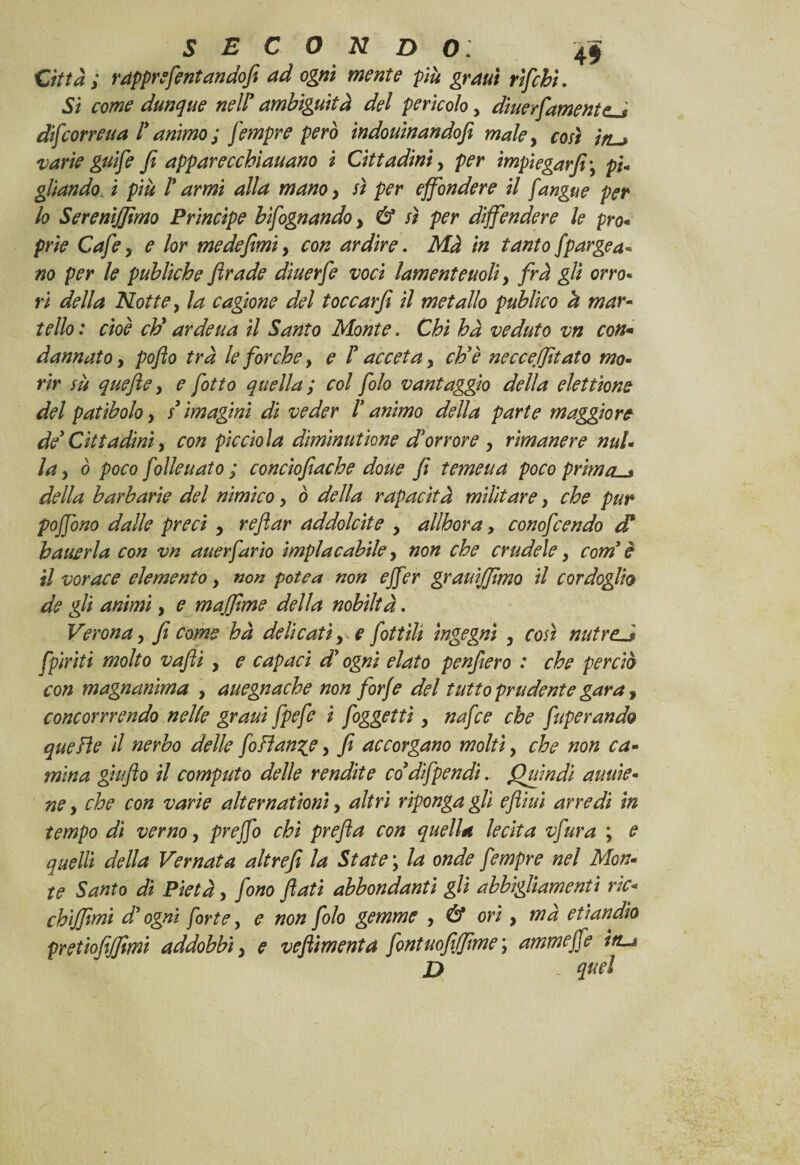 SECONDO. 49
Città; rapprsſentandoſi ad ogni mente più graui riſchi.
Sì come dunque nell' ambiguità del pericolo, diuerſamente
diſcorreua l'animo; ſempre però indouinandoſi male, così in
varie guiſe ſi apparecchiauano i Cittadini, per impiegarſi; pi-
gliando i più l'armi alla mano, sì per effondere il ſangue per
lo Sereniſſimo Principe biſognando, & sì per diffendere le pro-
prie Caſe, e lor medeſimi, con ardire. Mà in tanto ſpargea-
no per le publiche ſtrade diuerſe voci lamenteuoli, frà gli orro-
ri della Notte, la cagione del toccarſi il metallo publico à mar-
tello: cioè ch' ardeua il Santo Monte. Chi hà veduto vn con-
dannato, poſto trà le forche, e l'acceta, ch'è necceſſitato mo-
rir sù queſte, e ſotto quella; col ſolo vantaggio della elettione
del patibolo, s'imagini di veder l'animo della parte maggiore
de' Cittadini, con picciola diminutione d'orrore, rimanere nul-
la, ò poco ſolleuato; concioſiache doue ſi temeua poco prima
della barbarie del nimico, ò della rapacità militare, che pur
poſſono dalle preci, reſtar addolcite, allhora, conoſcendo d'
hauerla con vn auerſario implacabile, non che crudele, com' è
il vorace elemento, non potea non eſſer grauiſſimo il cordoglio
de gli animi, e maſſime della nobiltà.
Verona, ſi come hà delicati, e ſottili ingegni, così nutre
ſpiriti molto vaſti, e capaci d' ogni elato penſiero: che perciò
con magnanima, auegnache non forſe del tutto prudente gara,
concorrrendo nelle graui ſpeſe i ſoggetti, naſce che ſuperando
queſte il nerbo delle ſoſtanze, ſi accorgano molti, che non ca-
mina giuſto il computo delle rendite co' diſpendi. Quindi auuie-
ne, che con varie alternationi, altri riponga gli eſtiui arredi in
tempo di verno, preſſo chi preſta con quella lecita vſura; e
quelli della Vernata altreſi la State; la onde ſempre nel Mon-
te Santo di Pietà, ſono ſtati abbondanti gli abbigliamenti ric-
chiſſimi d' ogni ſorte, e non ſolo gemme, & ori, mà etiandio
pretioſiſſimi addobbi, e veſtimenta ſontuoſiſſime; ammeſſe in
D quel